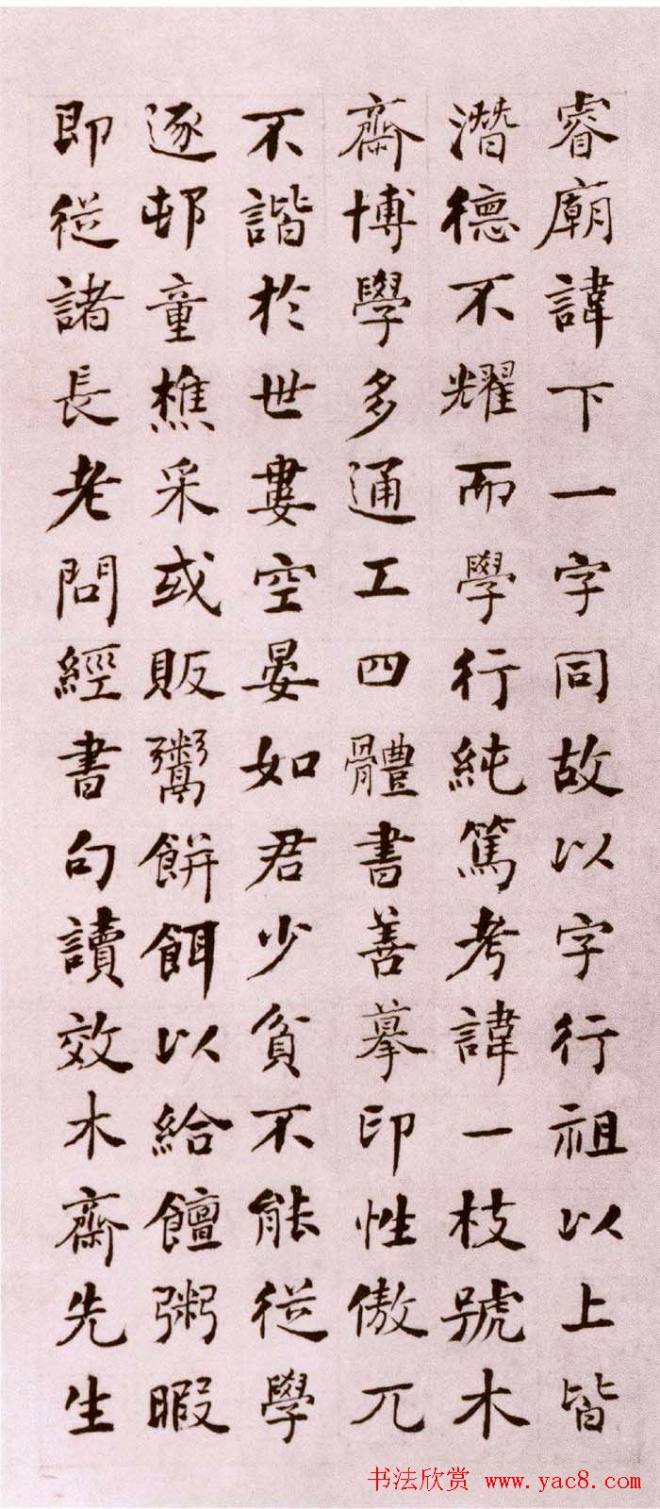 睿廟諱下一字同故以字行祖以上皆
潛德不耀而學行純篤考諱一枝號木
齋博學多通工四體書善摹印性傲兀
不諧於世婁空晏如君少貧不能從學
逐邨童樵采或販鬻餅餌以給饘粥暇
即從諸長老問經書句讀效木齋先生
书法欣赏 www.yac8.com